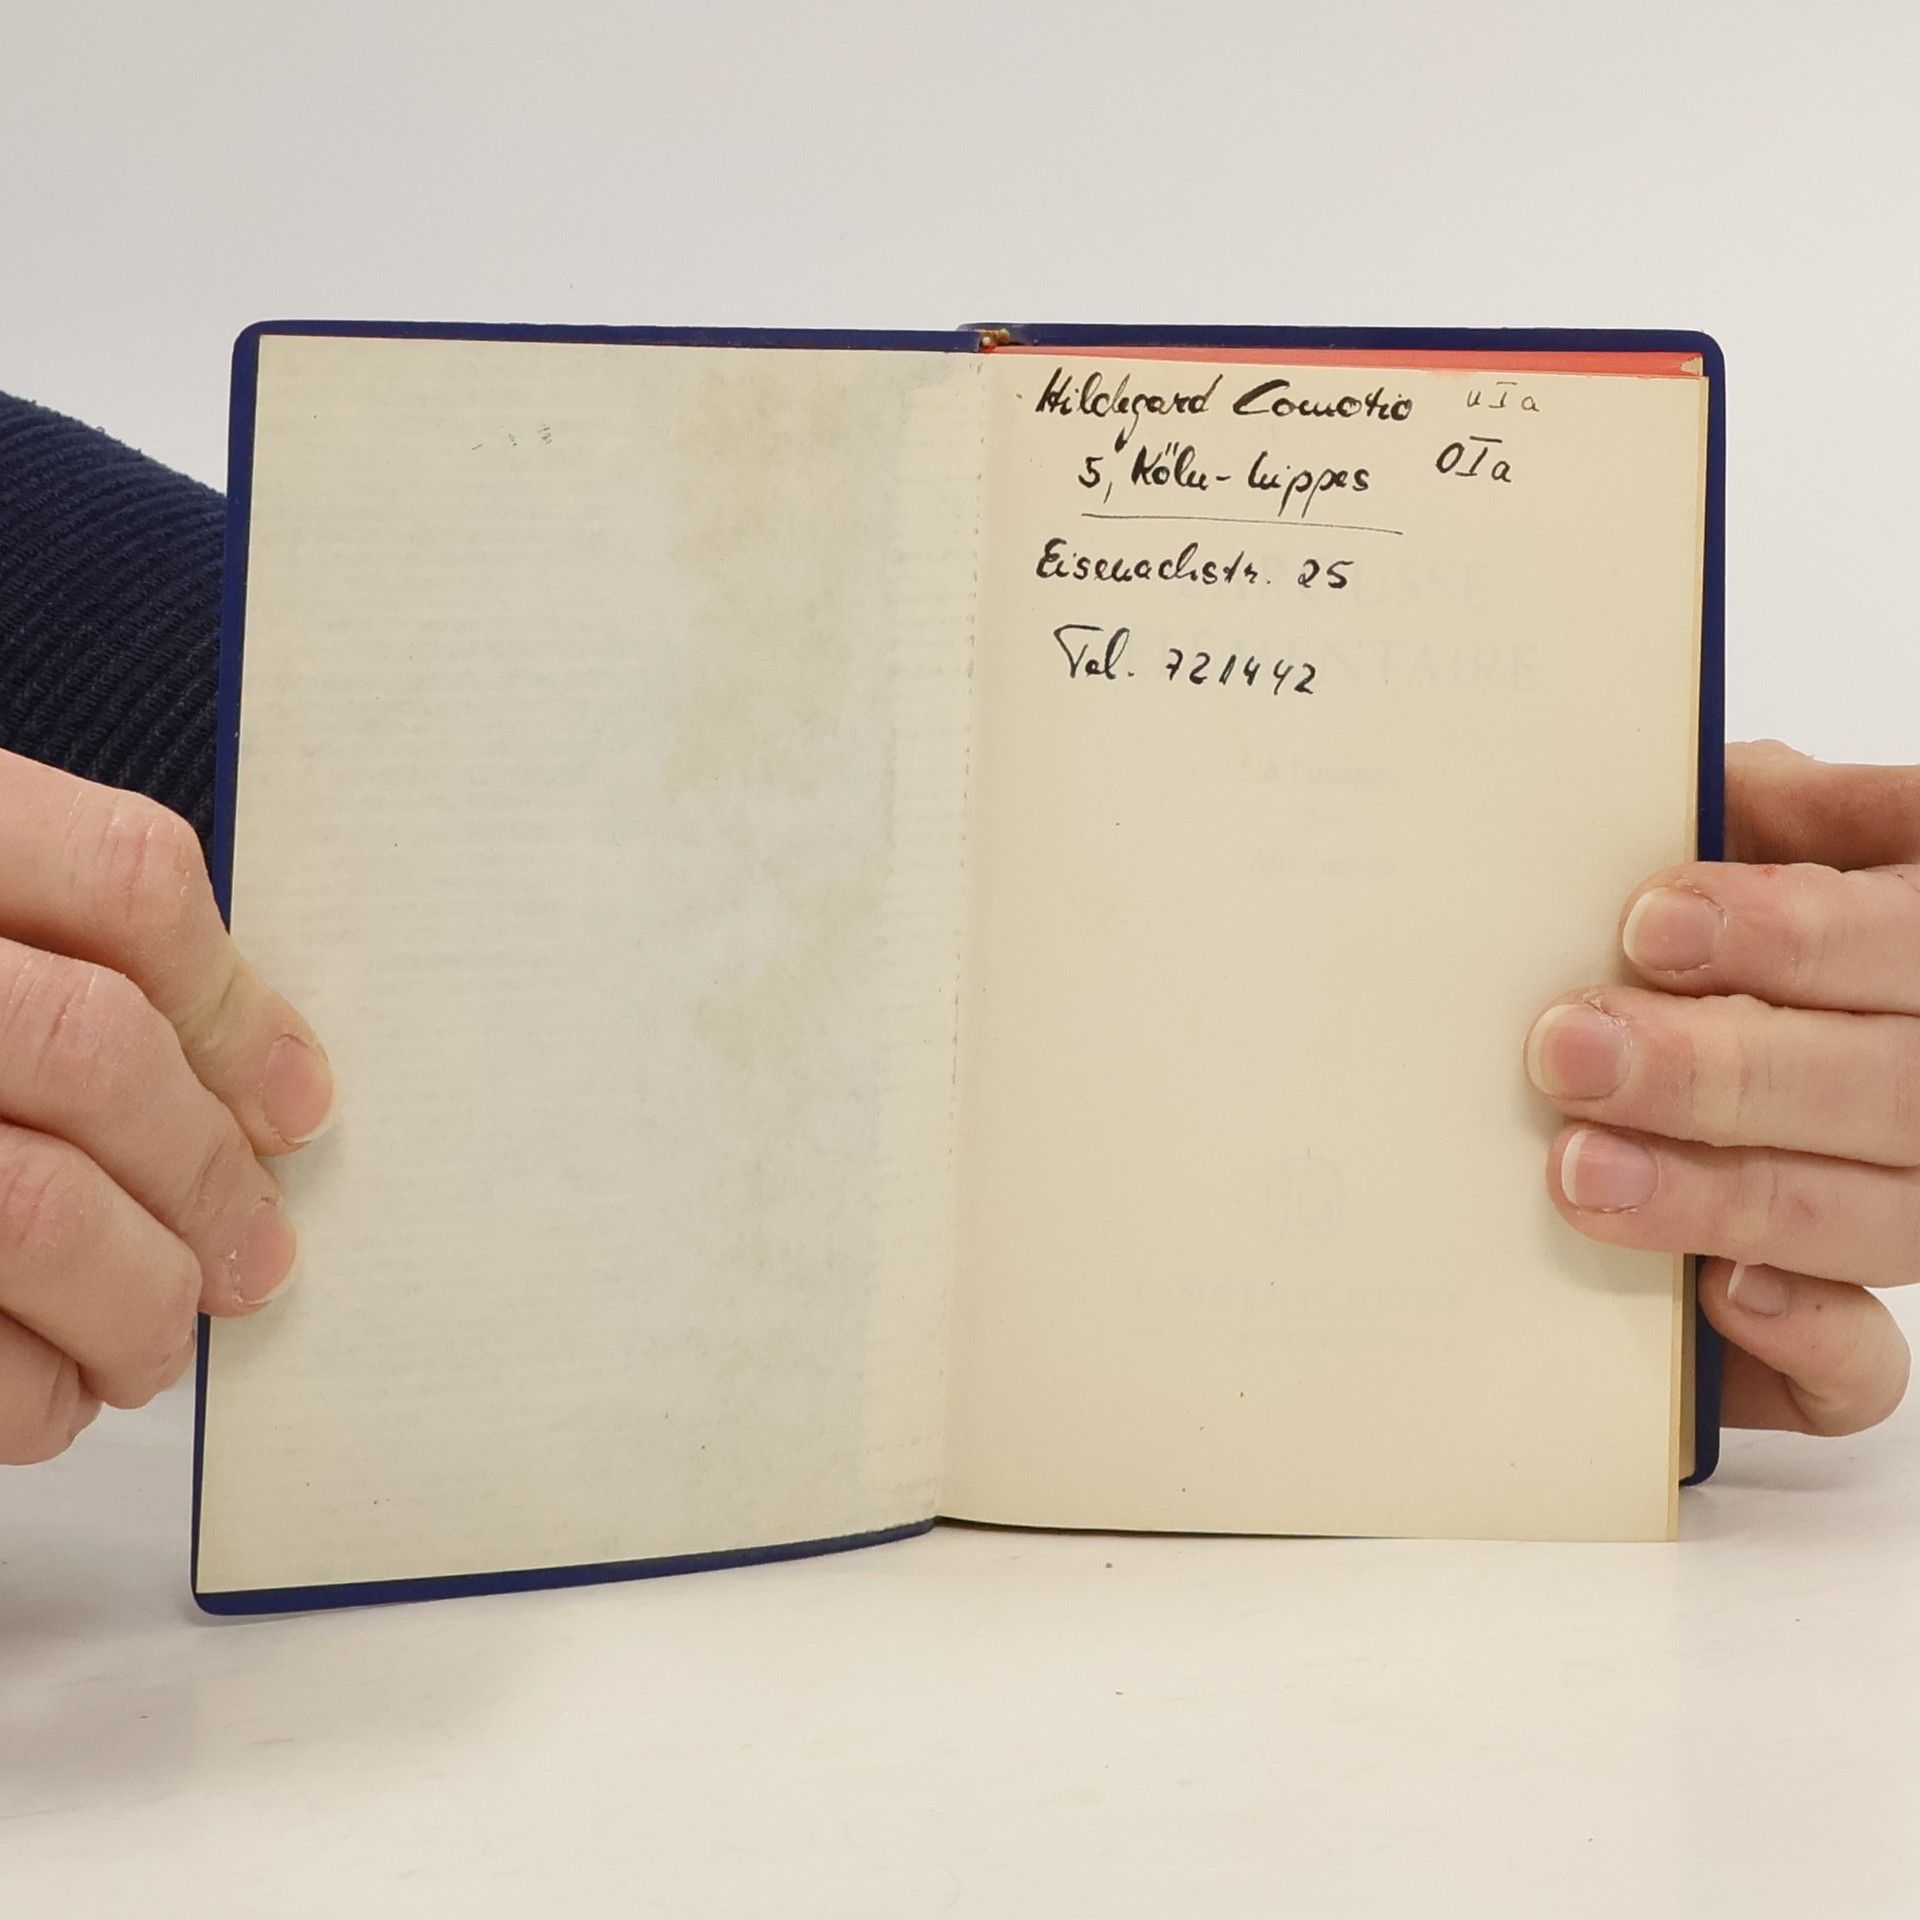 Hildegard Comotio uIa
5, Köln-Lippes OIa
Eisenachstr. 25
Tel. 721442